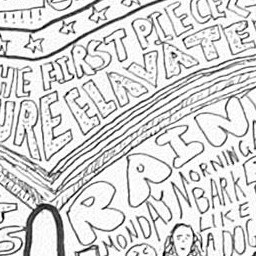 THE FIRST PIECE
URE ELAVATE
RAIN
MONDAY MORNING
BARK
LIKE
A DOG